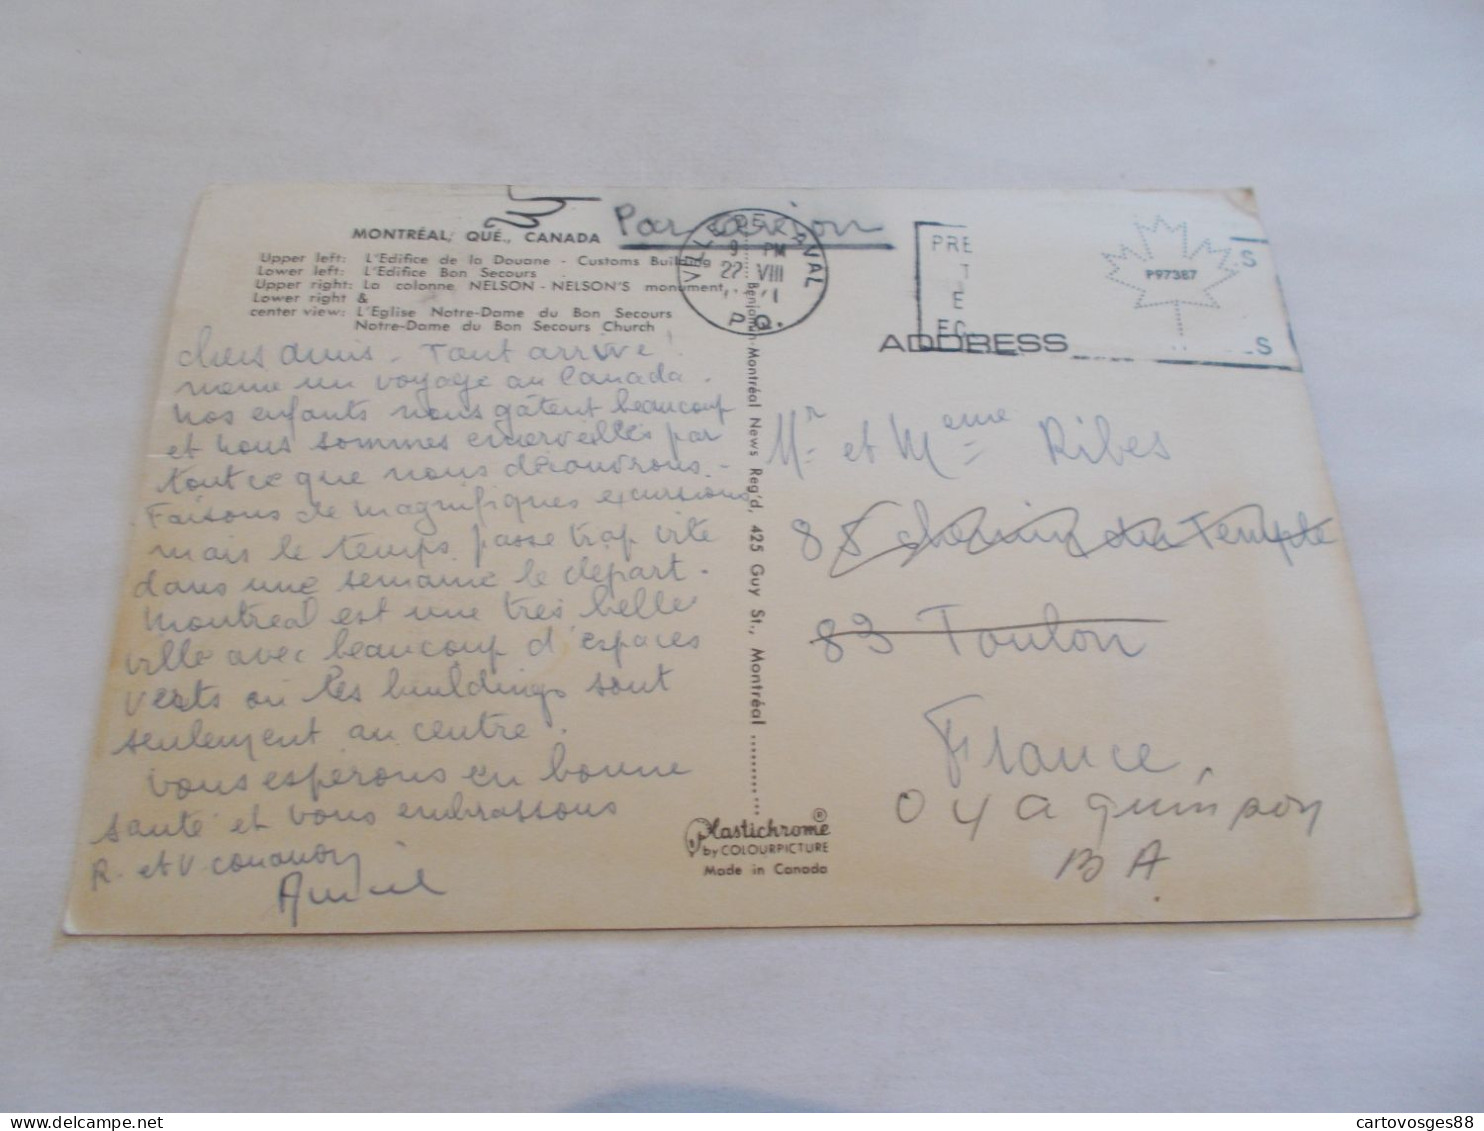 MONTRÉAL, QUÉ., CANADA
Upper left: L'Edifice de la Douane - Customs Building
Lower left: L'Edifice Bon Secours
Upper right: La colonne NELSON - NELSON'S monument,
Lower right &
center view: L'Eglise Notre-Dame du Bon Secours
Notre-Dame du Bon Secours Church
Par avion
VILLE DE LAVAL
9 PM
22 VIII
P.Q.
PRE
S
T
E
EC
S
P97387
ADDRESS
chers amis - Tout arrive !
meme un voyage au Canada.
nos enfants nous gâtent beaucoup
et nous sommes emerveillés par
tout ce que nous découvrons.-
Faisons de magnifiques excursions
mais le temps passe trop vite
dans une semaine le départ.
Montréal est une très belle
ville avec beaucoup d'espaces
verts où les buildings sont
seulement au centre.
vous esperons en bonne
santé et vous embrassons
R. et V.
Mr et Meme Ribes
85 chemin du Temple
83 Toulon
France
04 a quinson
BA
Benjamin-Montréal News Reg'd, 425 Guy St., Montréal
Plastichrome ®
by COLOURPICTURE
Made in Canada
cartovosges88